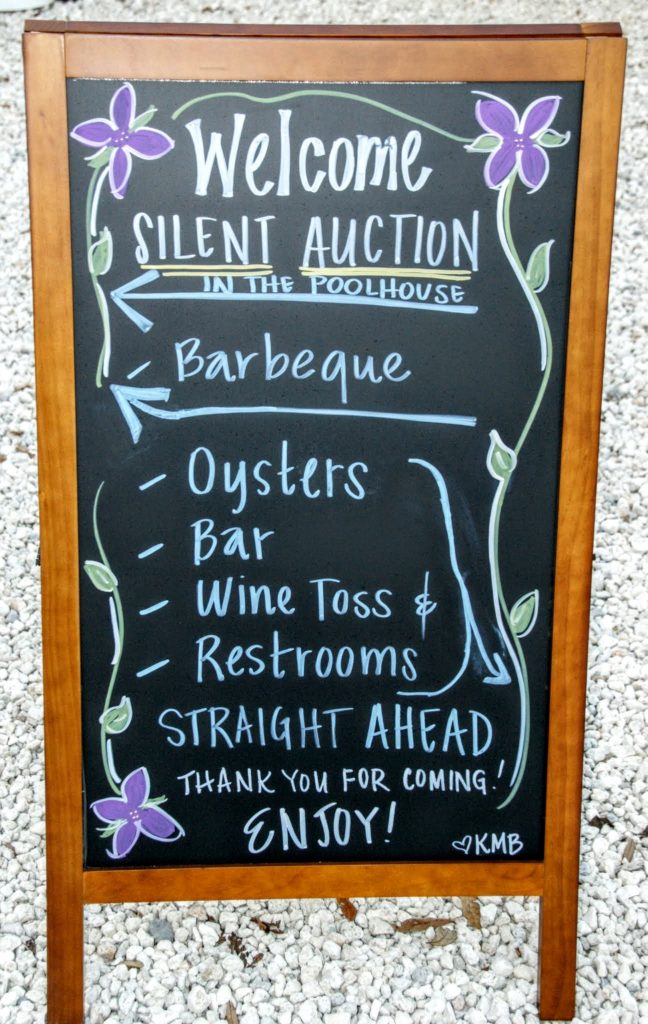 Welcome
SILENT AUCTION
IN THE POOLHOUSE
- Barbeque
- Oysters
- Bar
- Wine Toss &
- Restrooms
STRAIGHT AHEAD
THANK YOU FOR COMING!
ENJOY!
♡KMB